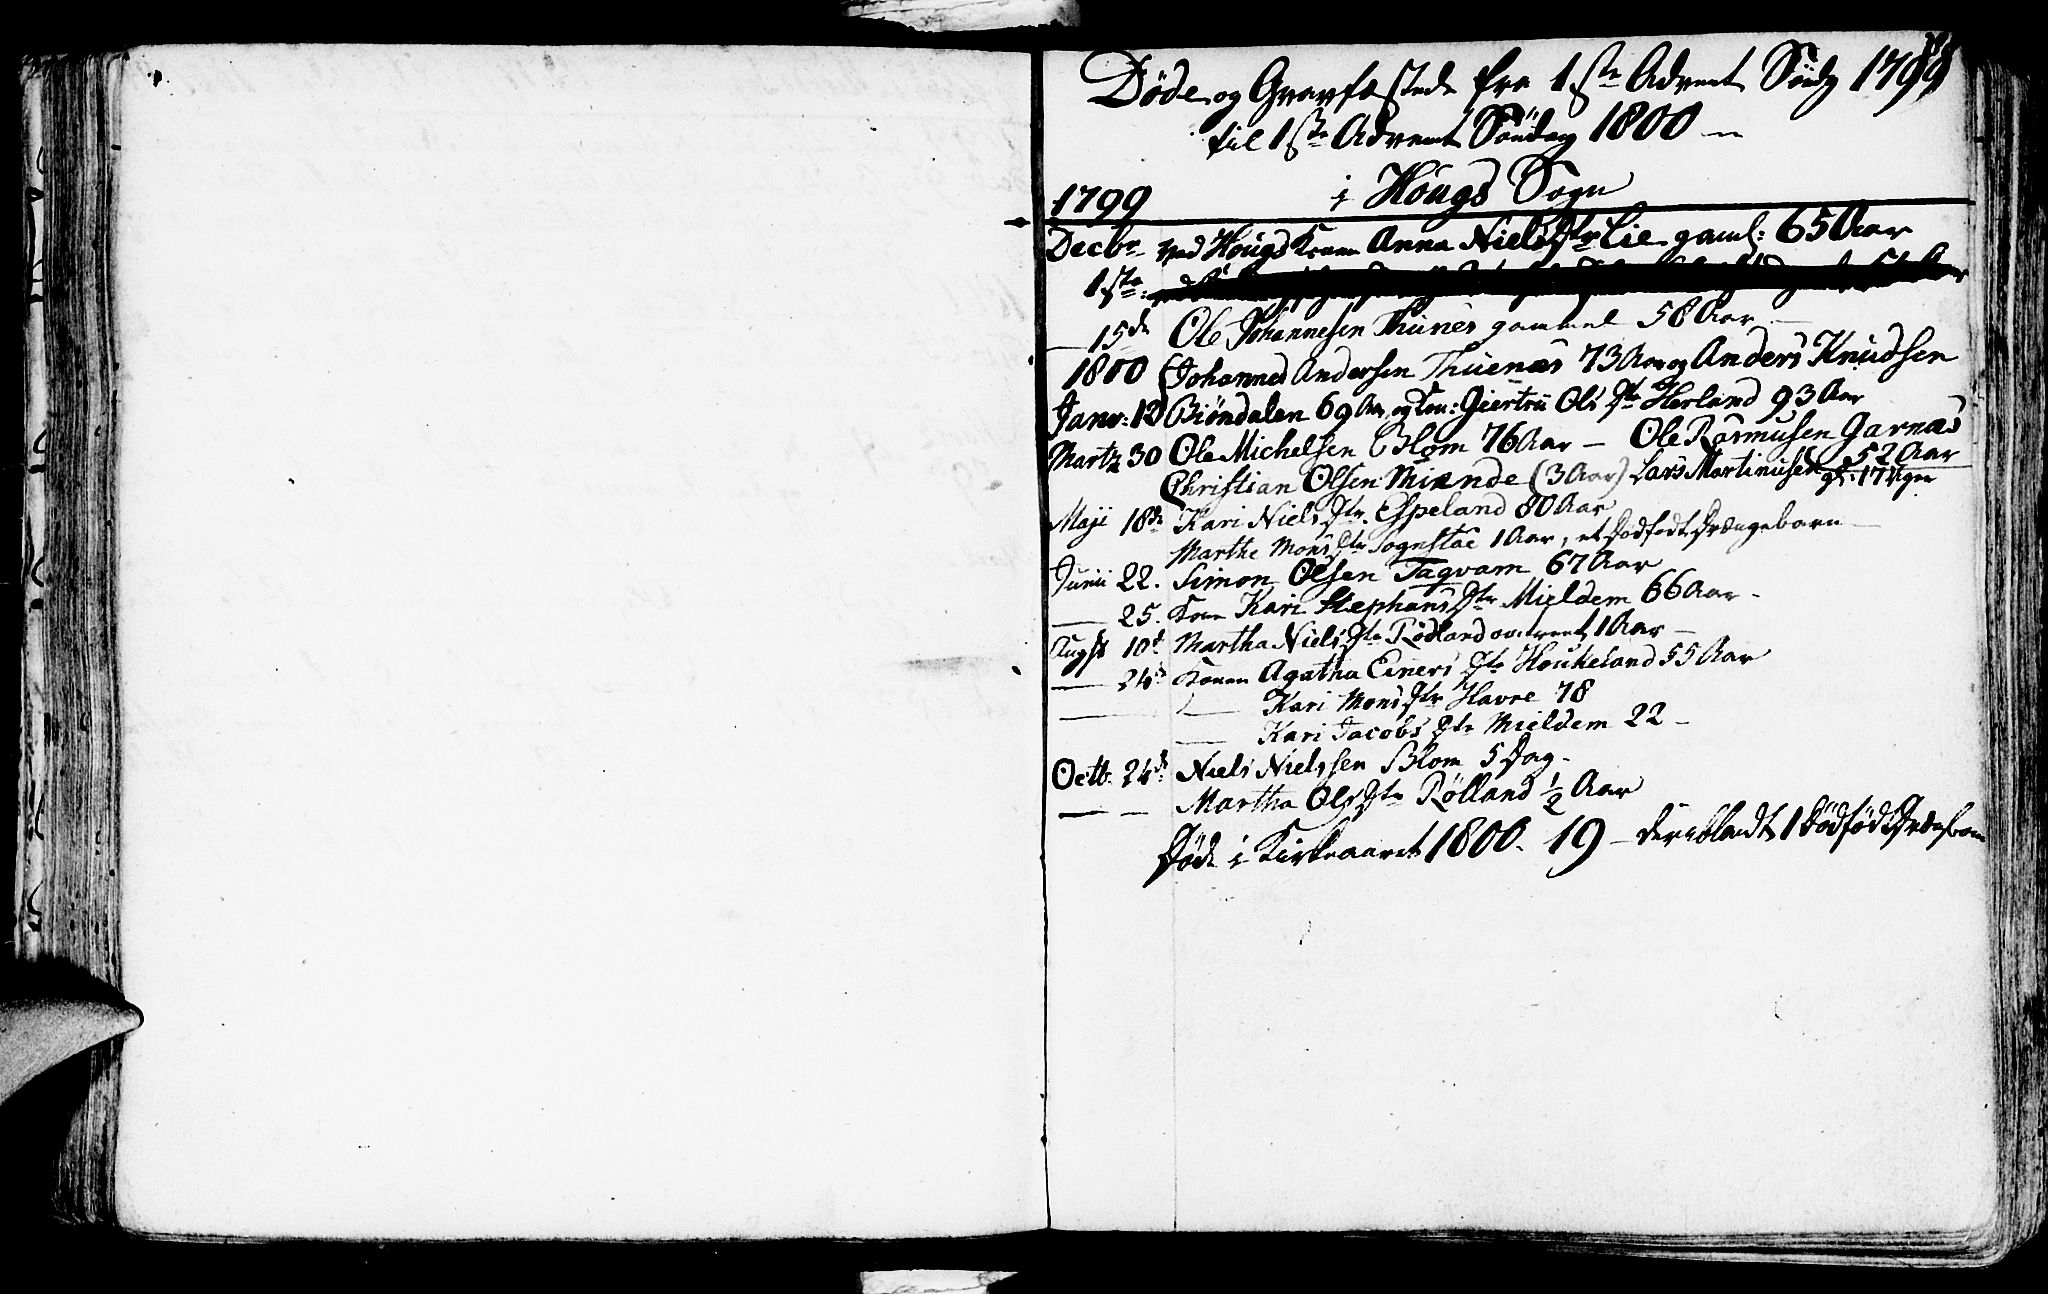 Døde og Gravfæstede fra 1ste Advent Sønd: 1799
til 1ste Advents Søndag 1800 –
i Hougs Sogn
1799
Decbr. ved Hougs Konen Anna NielsDtr Lie gaml: 65 Aar
1ste
15de Ole Johannesen Thunes gammel 58 Aar
1800 Johannes Andersen Thuenæs 73 Aar og Anders Knudsen
Janv: 12 Biöndalen 69 Aar, og Kon: Giertru Ols Dtr Herland 93 Aar
Martz 30 Ole Michelsen Blom 76 Aar – Ole Rasmusen Garnæs 52 Aar
Christian Olsen Miænde (3 Aar) Lars Martinusen gl: 17 Ugen
Maji 18de Kari Niels Dtr. Espeland 80 Aar
Marthe Mons Dtr Sognstæe 1 Aar, et dødfødt Drængebarn
Junii 22. Simon Olsen Tagvam 67 Aar
25. Kon Kari Stephans Dtr Mieldem 66 Aar –
Augst 10d. Martha Niels Dtr Rødland omtrent 1 Aar –
24d. Konen Agatha Einers Dtr Houkeland 55 Aar
Kari Mons Dtr Havre 78
Kari Jacobs Dtr Mieldem 22 –
Octb. 24d. Niels Nielssen Blom 5 Dag –
Martha Ols Dtr Rølland ½ Aar
Døde i Kirkeaaret 1800. 19 – deriblandt 1 dödfödt